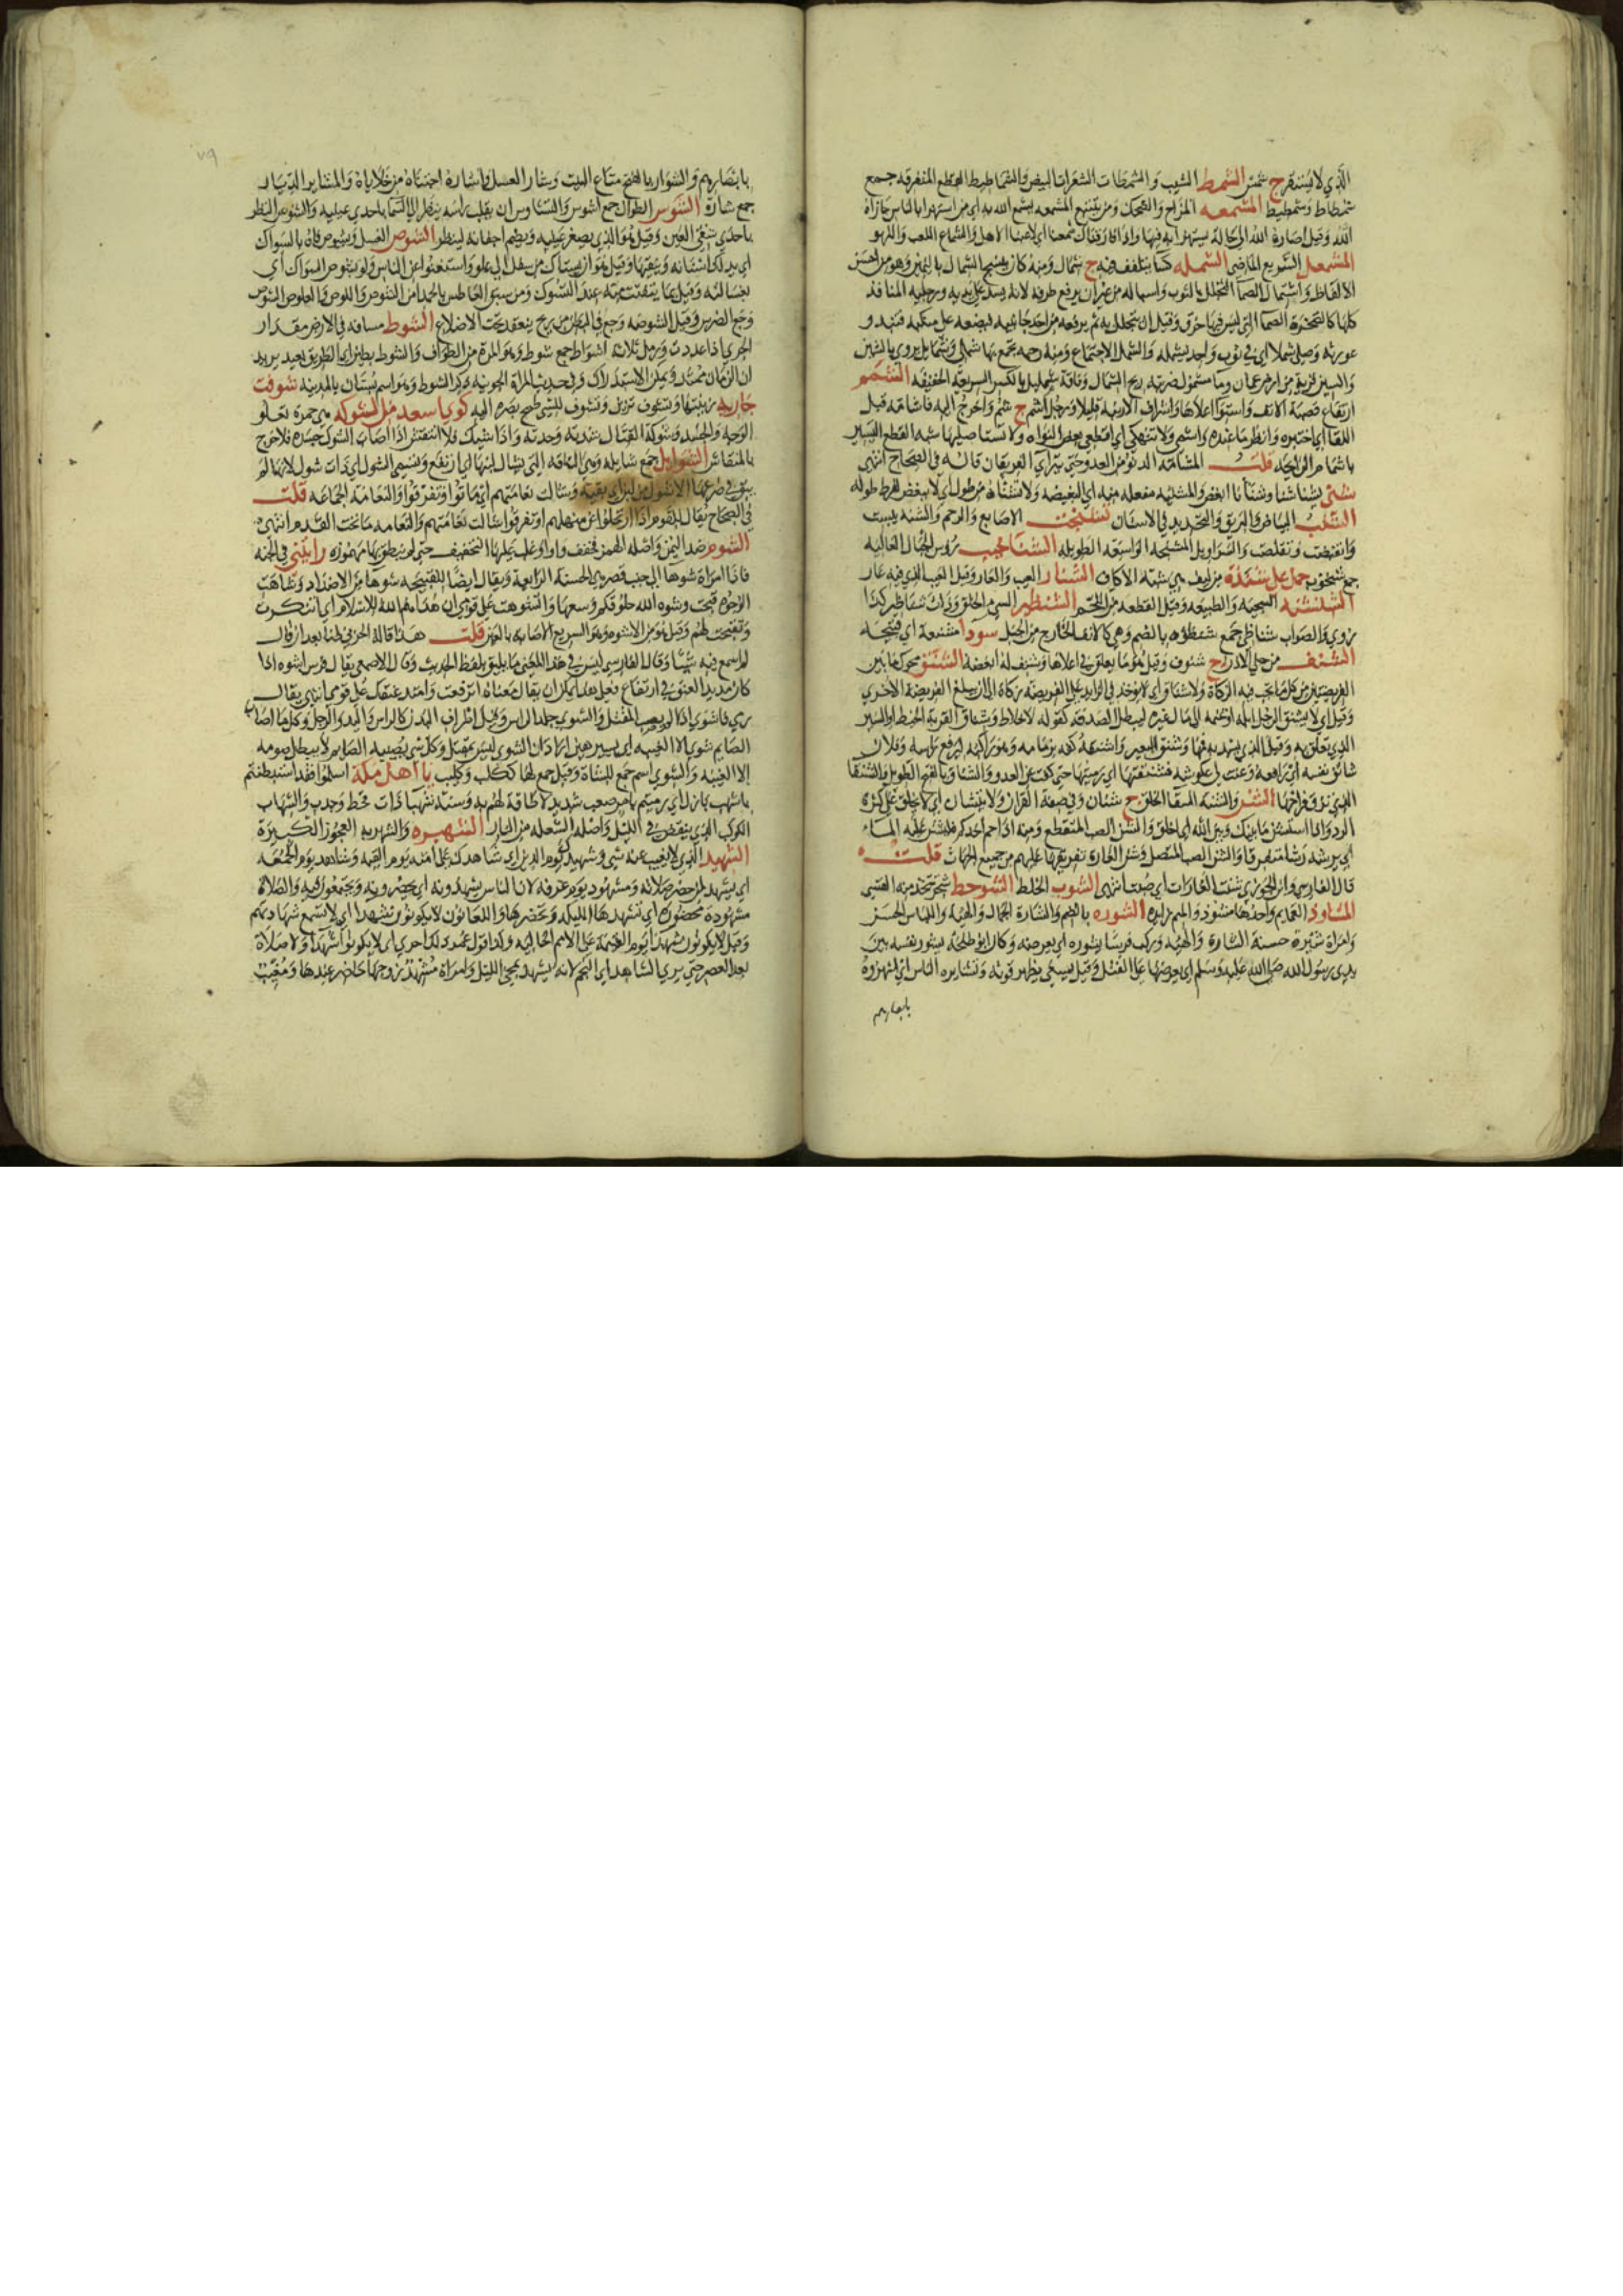 الذي لا يستنفر ج شمر الشمط الشيب والشمطات الشعرات البيض والشماطيط القطع المتفرقة جمع
شمطاط وشمطيط المشمعه المزاح والضحك ومن يتتبع المشمعه يشمع الله به اي من استهزا بالناس جازاه
الله وقيل اصاره الله الي حالة يستهزا به فيها واذا فارقناك شمعنا اي لاعبنا الاهل والشماع اللعب واللهو
المشمعل السريع الماضي الشمله كسا يتلفف فيه ج شمال ومنه كان ينسج الشمال باليمين وهو من احسن
الالفاظ واشتمال الصما التجلل بالثوب واسباله من غير ان يرفع طرفه لانه يسد علي يديه ورجليه المنافذ
كلها كالصخرة الصما التي ليس فيها خرق وقيل ان يتجلل به ثم يرفعه من احد جانبيه فيضعه علي منكبه فتبدو
عورته وصلي شملا اي في ثوب واحد يشمله والشمل الاجتماع ومنه رحمه تجمع بها شملي وشمائل يروي بالشين
والسين قرية من ارض عمان وما مشمول ضربته ريح الشمال وناقة شمليل بالكسر السريعه الخفيفه الشمم
ارتفاع قصبة الانف واستوا اعلاها واشراف الارنبه قليلا ورجل اشم ج شم واخرج اليه فاشامه قبل
اللقا اي اختبره وانظر ما عنده واشمي ولا تنهكي اي اقطعي بعض النواه ولا تستاصليها شبه القطع اليسير
باشمام الرائحه قلت المشامة الدنو من العدو حتي يترااي الفريقان قاله في الصحاح انتهي
شنئ يشنا شنا وشنأنا ابغض والمشنيه مفعله منه اي البغيضه ولا تشناه من طول اي لا يبغض لفرط طوله
الشنب البياض والبريق والتحديد في الاسنان تشنجت الاصابع والرحم والسنه يبست
وانقبضت وتقلصت والسراويل المشنجه الواسعة الطويله الشناخيب رؤس الجبال العاليه
جمع شنخوب جمل علي شنذة من ليف هي شبه الاكاف الشنار العيب والعار وقيل العيب الذي فيه عار
الشنشنه السجيه والطبيعه وقيل القطعه من اللحم الشنظير السي الخلق وذات شناظير كذا
روي والصواب شناظي جمع شنظوه بالضم وهي كالانف الخارج من الجبل سودا مشنعة اي قبيحه
الشنف من حلي الاذن ج شنوف وقيل هو ما يعلق في اعلاها وشنف له ابغضه الشنق محرك ما بين
الفريضتين من كل ما تجب فيه الزكاة ولا شناق اي لا يؤخذ في الزايد علي الفريضة زكاة الي ان يبلغ الفريضة الاخري
الذي تعلق به وقيل الذي يشد به فمها وشنق البعير واشنقه كفه بزمامه وهو راكبه ليرفع راسه وفلان
اللاتي تزق فراخها الشن والشنه السقا الخلق ج شنان وفي صفة القران ولا يتشان اي لا يخلق علي كثرة
اي يرشه رشا متفرقا والشن الصب المنقطع وشن الغارة تفريقها عليهم من جميع الجهات قلت
قال الفارسي وابن الجوزي شنت الغارات اي صبت انتهي الشوب الخلط الشوحط شجر تتخذ منه القسي
المشاوذ العمايم واحدها مشوذ والميم زايده الشوره بالضم والشارة الجمال والهيئة واللباس الحسن
وامراة شيرة حسنة الشارة والهيئه وركب فرسا يشوره اي يعرضه وكان ابو طلحة يشور نفسه بين
يدي رسول الله صلي الله عليه وسلم اي يعرضها علي القتل وقيل يسعي يظهر قوته وتشايره الناس اي اشتهروه
بابصارهم
٧٩
بابصارهم والشوار بالفتح متاع البيت وشار العسل واشاره اجتناه من خلاياه والمشاير الديار
جمع شارة الشوس الطوال جمع اشوس والتشاوس ان يقلب راسه ينظر الي السما باحدي عينيه والشوس النظر
باحدي شقي العين وقيل هو الذي يصغر عينيه ويضم اجفانه لينظر الشوص الغسل ويشوص فاه بالسواك
اي يدلك اسنانه وينقيها وقيل هو ان يستاك من سفل الي علو واستغنوا عن الناس ولو بشوص السواك اي
بغسالته وقيل بما يتفتت منه عند التسوك ومن سبق العاطس بالحمد امن الشوص واللوص والعلوص الشوص
وجع الضرس وقيل الشوصه وجع في البطن من ريح ينعقد تحت الاضلاع الشوط مسافة في الارض مقدار
الجري اذا عددت ورمل ثلاثة اشواط جمع شوط وهو المرة من الطواف والشوط بطين اي الطريق بعيد يريد
ان الزمان ممتد ويمكن الاستدراك وفي حديث المراة الجونية ذكر الشوط وهو اسم بستان بالمدينه شوفت
جاريه زينتها وتشوف تزين وتشوف للشي طمح بصره اليه كوي اسعد من الشوكه هي حمرة تعلو
الوجه والجسد وشوكة القتال شدته وحدته واذا شيك فلا انتقش اذا اصابه الشوك جسده فلا خرج
بالمنقاش الشوايل جمع شايله وهي الناقه التي شال لبنها اي ارتفع وتسمي الشول اي ذات شول لانه لم
يبق في ضرعها الا شول من لبن اي بقية وشالت نعامتهم اي ماتوا وتفرقوا والنعامة الجماعه قلت
في الصحاح يقال للقوم اذا ارتحلوا عن منهلهم او تفرقوا شالت نعامتهم والنعامه ما تحت القدم انتهي
الشوم ضد اليمن واصله الهمز فخفف واوا وغلب عليها التخفيف حتي لم ينطق بها مهموزه رايتني في الجنه
فاذا امراة شوها الي جنب قصر هي الحسنة الرايعة ويقال ايضا للقبيحه شوها من الاضداد وشاهت
الوجوه قبحت وشوه الله حلوقكم وسعها واتشوهت علي قومي ان هداهم الله للاسلام اي اتنكرت
وتقبحت لهم وقيل هو من الاشوه وهو السريع الاصابه بالعين قلت هذا قاله الحربي ظنا بعد ان قال
لم اسمع فيه شيا وقال الفارسي ليس في هذا المعني ما يليق بلفظ الحديث وقال الاصمعي يقال فرس اشوه اذا
كان مديد العنق في ارتفاع فعلي هذا يمكن ان يقال معناه اترفعت وامتد عنقك علي قومي انتهي يقال
رمي فاشوي اذا لم يصب المقتل والشوي جلد الراس وقيل اطراف البدن كالراس واليد والرجل وكل ما اصاب
الصايم شوي الا الغيبه اي يسير هين اراد ان الشوي ليس بمقتل وكل شي يصيبه الصايم لا يبطل صومه
الا الغيبه والشوي اسم جمع للشاة وقيل جمع لها ككلب وكليب يا اهل مكة اسلموا فقد استبطنتم
باشهب بازل اي رميتم بامر صعب شديد لا طاقة لهم به وسنة شهبا ذات قحط وجدب والشهاب
الكوكب الذي ينقض في الليل واصله الشعله من النار الشهبره والشهربه العجوز الكبيرة
الشهيد الذي لا يغيب عنه شي وشهيدك يوم الدين اي شاهدك علي امته يوم القيمه وشاهد يوم الجمعه
اي يشهد لمن حضر صلاته ومشهود يوم عرفه لان الناس يشهدونه اي يحضرونه ويجتمعون فيه والصلاة
مشهودة محضورة اي تشهدها المليكه وتحضرها واللعانون لا يكونون شهدا اي لا تسمع شهادتهم
وقيل لا يكونون شهدا يوم القيمة علي الامم الخاليه
بعد العصر حتي يري الشاهد اي النجم لانه يشهد بمجي الليل وامراة مشهد زوجها حاضر عندها ومغيب